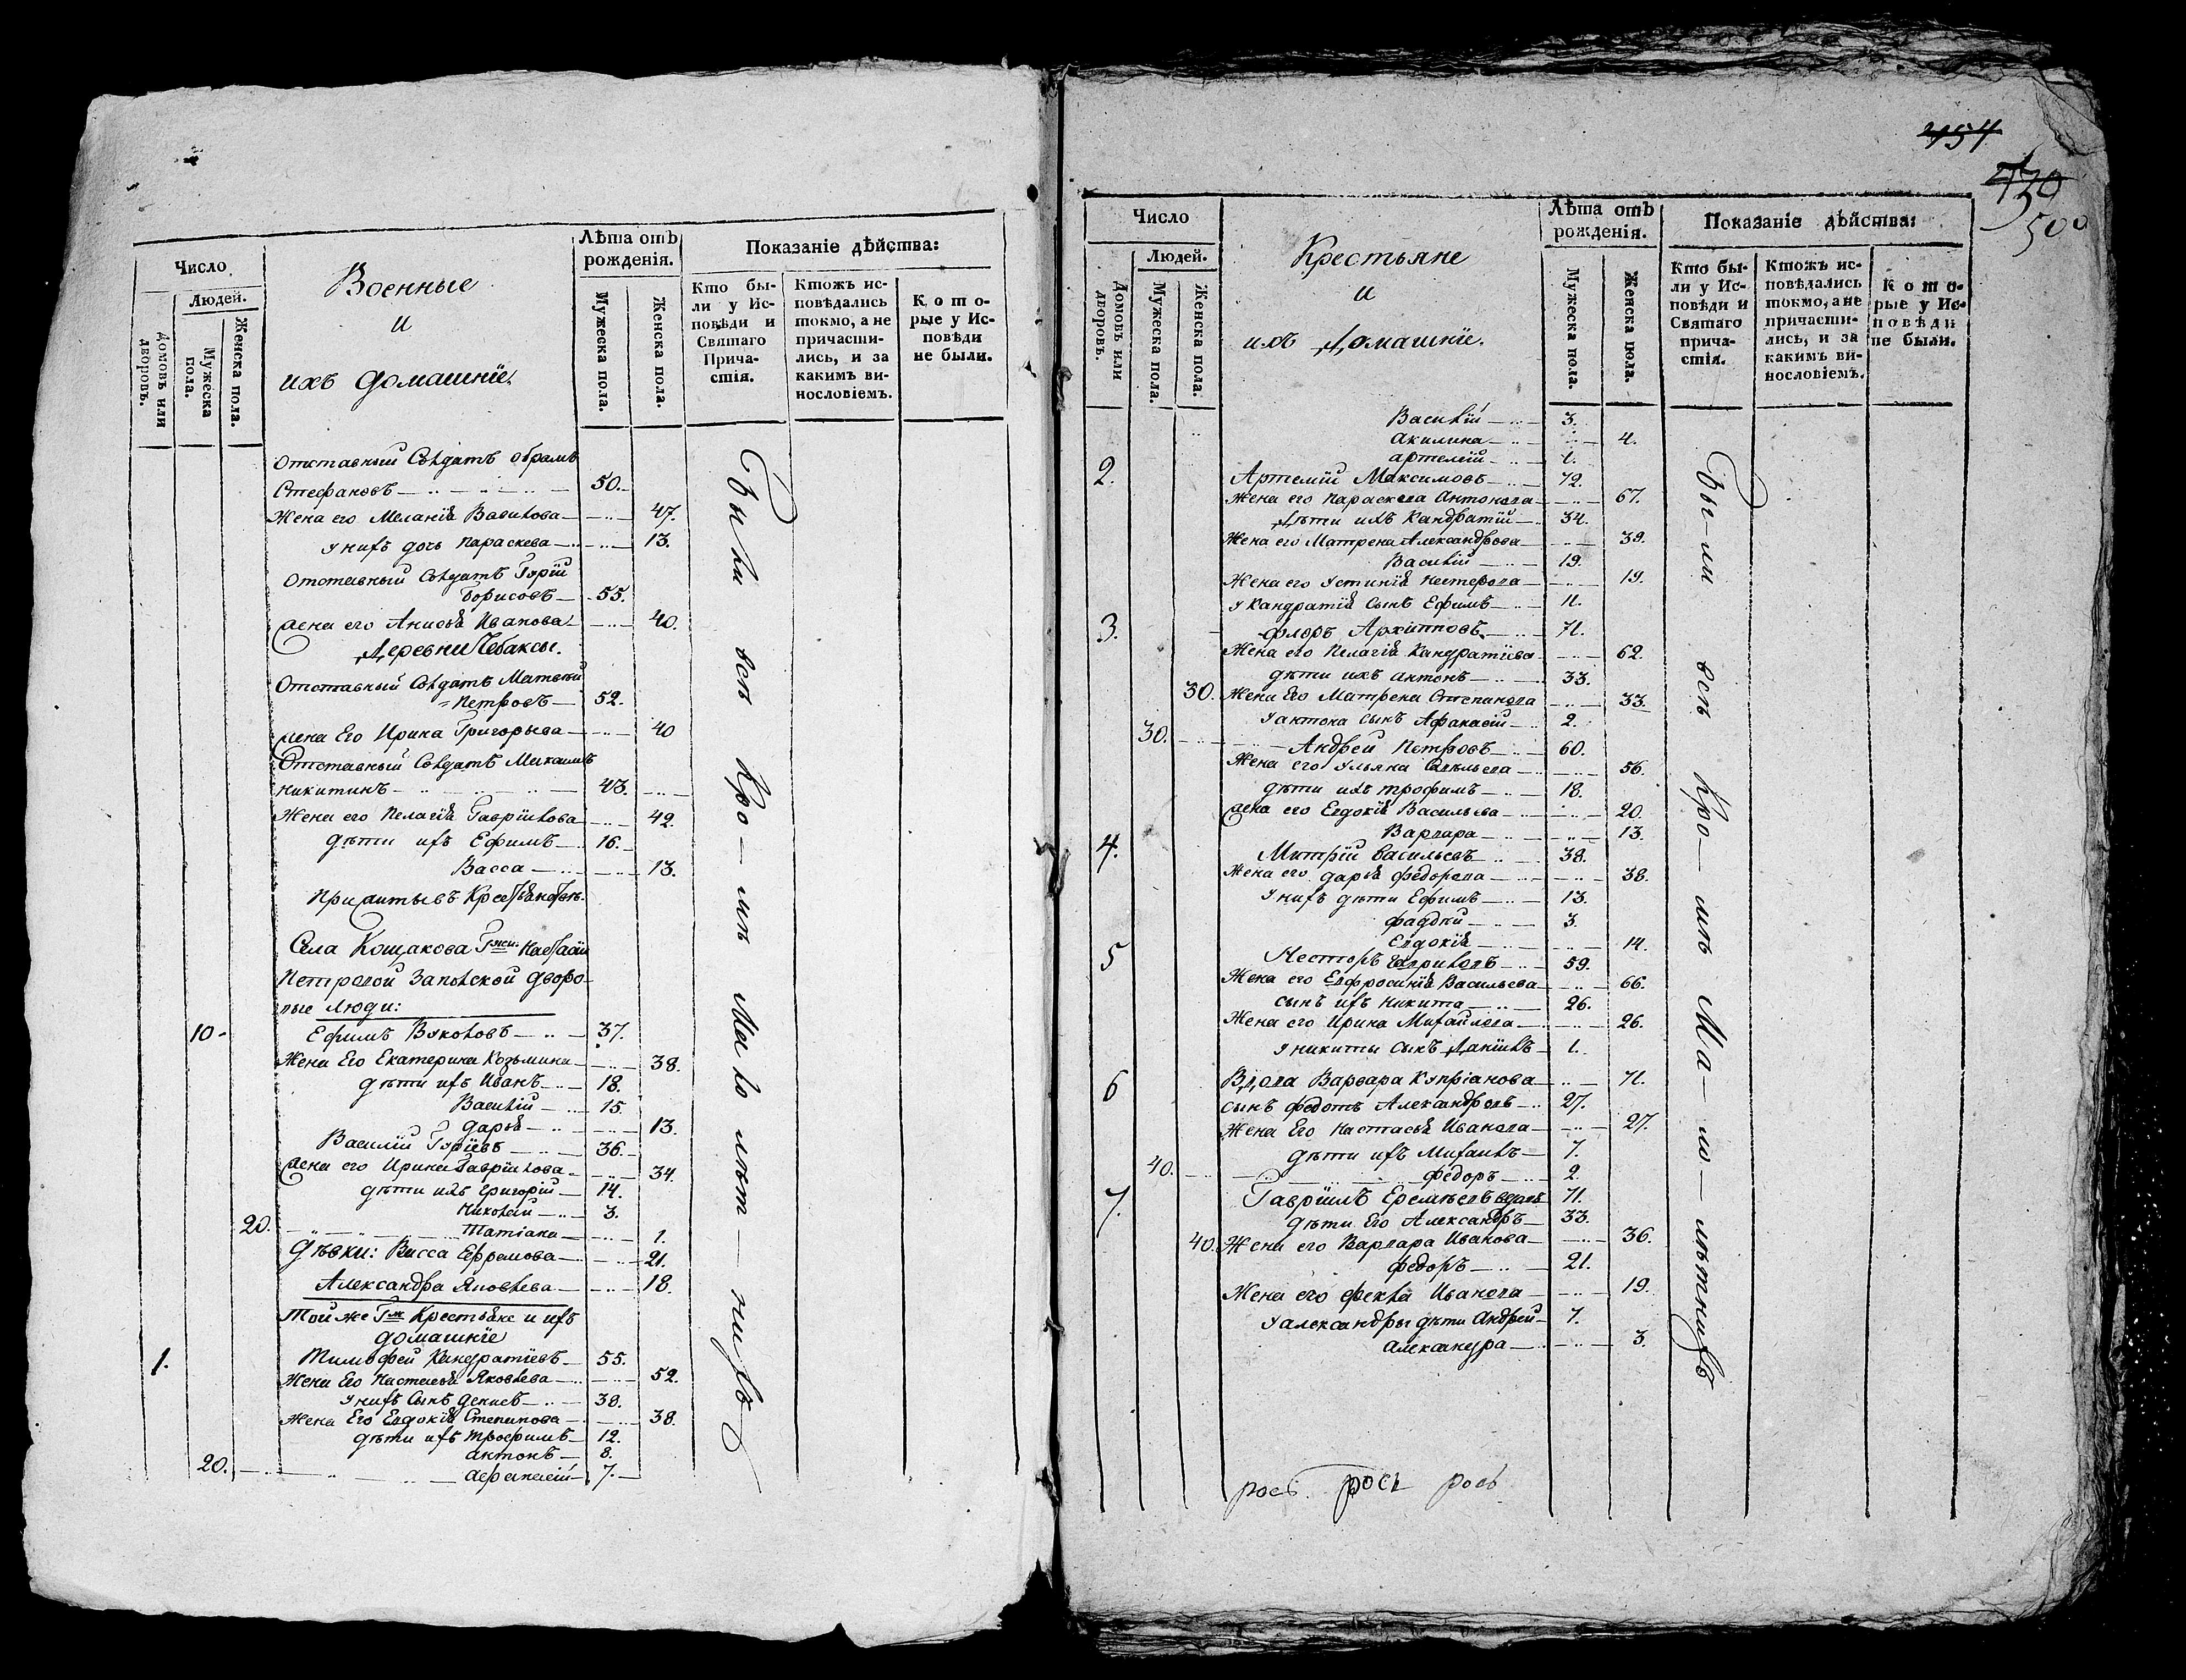 Число
Людей.
Домовъ или дворовъ.
Мужеска пола.
Женска пола.
Военные
и
ихъ домашніе.
Лѣта отъ рожденія.
Мужеска пола.
Женска пола.
Показаніе дѣйства:
Кто бы-
ли у Ис-
повѣди и
Святаго
Прича-
стія.
Ктожъ ис-
повѣдались
токмо, а не
причасти-
лись, и за
какимъ ви-
нословіемъ.
Кото-
рые у Ис-
повѣди
не были.
Отставный Солдатъ
Стефановъ 50.
Жена его Меланія Василова 47.
у нихъ дочь Параскева 13.
Отставный Солдатъ Гурій
Борисовъ 55.
Жена его Анисья Иванова 40.
Деревни Чебаксы.
Отставный Солдатъ Матвѣй
Петровъ 52.
Жена Его Ирина Григорьева 40
Отставный Солдатъ Михаилъ
Никитинъ 43.
Жена его Пелагія Гавриилова 42.
дѣти ихъ Ефимъ 16.
Васса 13.
Села Кощакова Гжи
Петровой дворо-
вые люди:
10 Ефимъ Яковлевъ 37.
Жена Его Екатерина Козьмина 38.
дѣти ихъ Иванъ 18.
Василій 15.
Дарья 13.
Василій Гурьевъ 36.
Жена его Ирина Гавриилова 34.
дѣти ихъ Григорій 14.
Николай 3.
20. Татіана 1.
Дѣвки: Васса Ефремова 21.
Александра Яковлева 18.
Той же Гжи Крестьяне и ихъ
домашніе
1. Тимофей Кандратіевъ 55.
Жена Его Настасья Яковлева 52.
у нихъ Сынъ Денисъ 38.
Жена Его Евдокія Степанова 38.
дѣти ихъ Трофимъ 12.
Антонъ 8.
20. Афанасій 7.
Были всѣ Кро-мѣ мало лѣт-нихъ
454
430
500
Число
Людей.
Домовъ или дворовъ.
Мужеска пола.
Женска пола.
Крестьяне
и
ихъ Домашніе.
Лѣта отъ рожденія.
Мужеска пола.
Женска пола.
Показаніе дѣйства:
Кто бы-
ли у Ис-
повѣди и
Святаго
прича-
стія.
Ктожъ ис-
повѣдались
токмо, а не
причасти-
лись, и за
какимъ ви-
нословіемъ.
Кото-
рые у Ис-
повѣди
не были.
Василій 3.
Акилина 4.
Артемій 1.
2. Артемій Максимовъ 72.
Жена его Параскева Антонова 67.
Дѣти ихъ Кандратій 34.
Жена его Матрена Александрова 39.
Василій 19.
Жена его Устинія Нестерова 19.
у Кандратія Сынъ Ефимъ 11.
3. Флоръ Архиповъ 71.
Жена его Пелагія Кандратіева 62.
дѣти ихъ Антонъ 33.
30. Жена Его Матрена Степанова 33.
у Антона сынъ Афанасій 2.
30. Андрей Петровъ 60.
Жена его Ульяна Савельева 56.
дѣти ихъ Трофимъ 18.
Жена его Евдокія Васильева 20.
Варвара 13.
4. Митрій Васильевъ 38.
Жена его Дарья Федорова 38.
у нихъ дѣти Ефимъ 13.
Фаддѣй 3.
Евдокія 14.
5 Несторъ Гавриловъ 59.
Жена его Евфросинія Васильева 66.
Сынъ ихъ Никита 26.
Жена его Ирина Михайлова 26.
у Никиты Сынъ Даніилъ 1.
6 Вдова Варвара Купріанова 71.
сынъ Федотъ Александровъ 27.
Жена Его Настасья Иванова 27.
дѣти ихъ Михаилъ 7.
40. Федоръ 2.
7. Гавріилъ Еремѣевъ вдовъ 71.
дѣти Его Александръ 33.
40. Жена его Варвара Иванова 36.
Федоръ 21.
Жена его Фекла Иванова 19.
у Александры дѣти Андрей 7.
Александра 3.
Бы-ли всѣ Кро-мѣ Ма-ло-лѣтнихъ
рось рось рось